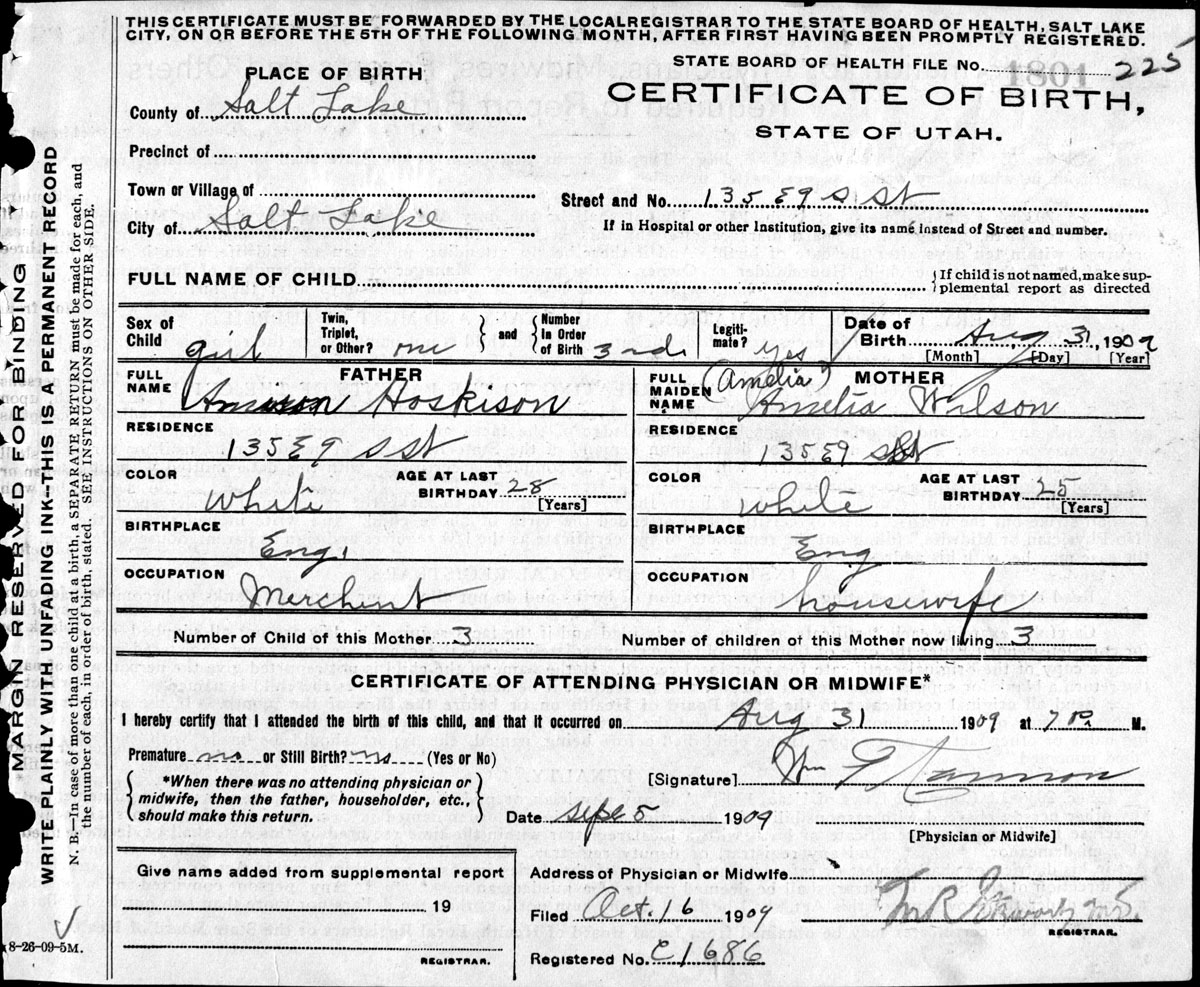 THIS CERTIFICATE MUST BE FORWARDED BY THE LOCALREGISTRAR TO THE STATE BOARD OF HEALTH, SALT LAKE
CITY, ON OR BEFORE THE 5TH OF THE FOLLOWING MONTH, AFTER FIRST HAVING BEEN PROMPTLY REGISTERED.
STATE BOARD OF HEALTH FILE No. 1801 225
CERTIFICATE OF BIRTH,
STATE OF UTAH.
PLACE OF BIRTH
County of Salt Lake
Precinct of
Town or Village of
City of Salt Lake
Street and No. 135 E 9 S St
If in Hospital or other Institution, give its name instead of Street and number.
FULL NAME OF CHILD
If child is not named, make sup-
plemental report as directed
Sex of Child girl
Twin, Triplet, or Other? one
and
Number in Order of Birth 3rd
Legiti-mate? yes
Date of Birth Aug 31, 1909
[Month] [Day] [Year]
FATHER
FULL NAME Hoskison
RESIDENCE
135 E 9 S St
COLOR White
AGE AT LAST BIRTHDAY 28
[Years]
BIRTHPLACE
Eng.
OCCUPATION
Merchant
MOTHER
(Amelia)
FULL MAIDEN NAME Amelia Wilson
RESIDENCE
135 E 9 S St
COLOR White
AGE AT LAST BIRTHDAY 25
[Years]
BIRTHPLACE
Eng
OCCUPATION
housewife
Number of Child of this Mother 3
Number of children of this Mother now living 3
CERTIFICATE OF ATTENDING PHYSICIAN OR MIDWIFE*
I hereby certify that I attended the birth of this child, and that it occurred on Aug 31 1909 at 7 P. M.
Premature no or Still Birth? no (Yes or No)
*When there was no attending physician or
midwife, then the father, householder, etc.,
should make this return.
[Signature] Wm
Date Sept 5 1909
[Physician or Midwife]
Give name added from supplemental report
19
REGISTRAR.
Address of Physician or Midwife
Filed Oct. 16 1909
REGISTRAR.
Registered No. C1686
MARGIN RESERVED FOR BINDING
WRITE PLAINLY WITH UNFADING INK-THIS IS A PERMANENT RECORD
N. B.—In case of more than one child at a birth, a SEPARATE RETURN must be made for each, and
the number of each, in order of birth, stated. SEE INSTRUCTIONS ON OTHER SIDE.
8-26-09-5M.